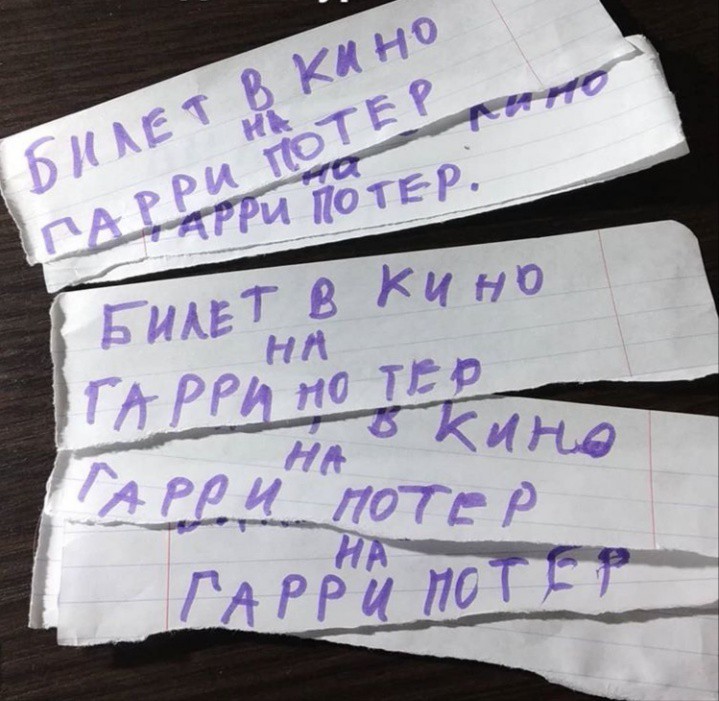 БИЛЕТ В КИНО
НА
ГАРРИ ПОТЕР
КИНО
на
ГАРРИ ПОТЕР.
БИЛЕТ В КИНО
НА
ГАРРИ ПОТЕР
В КИНО
НА
ГАРРИ ПОТЕР
НА
ГАРРИ ПОТЕР